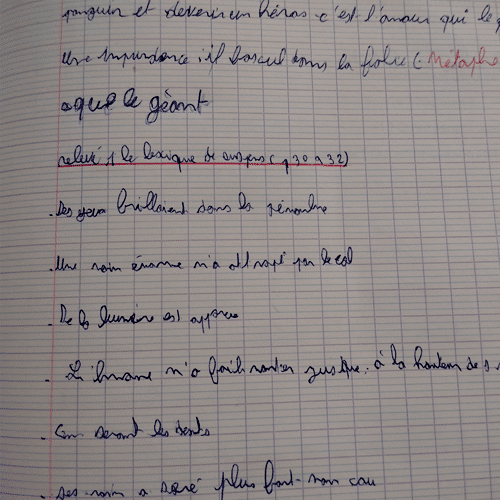 et devenir un héros - c'est l'amour qui le
Une imprudence : il bascul dans la folie (Métaphe
que le géant
relevé le lexique de (p 30 a 32)
. Des yeux brillaient dans la pénombre
. Une main énorme m'a attrapé par le col
. De la lumière est apparue
. m'a fait monter jusque à la hauteur de s
. En serrant les dents
. Ses main a serré plus fort mon cou